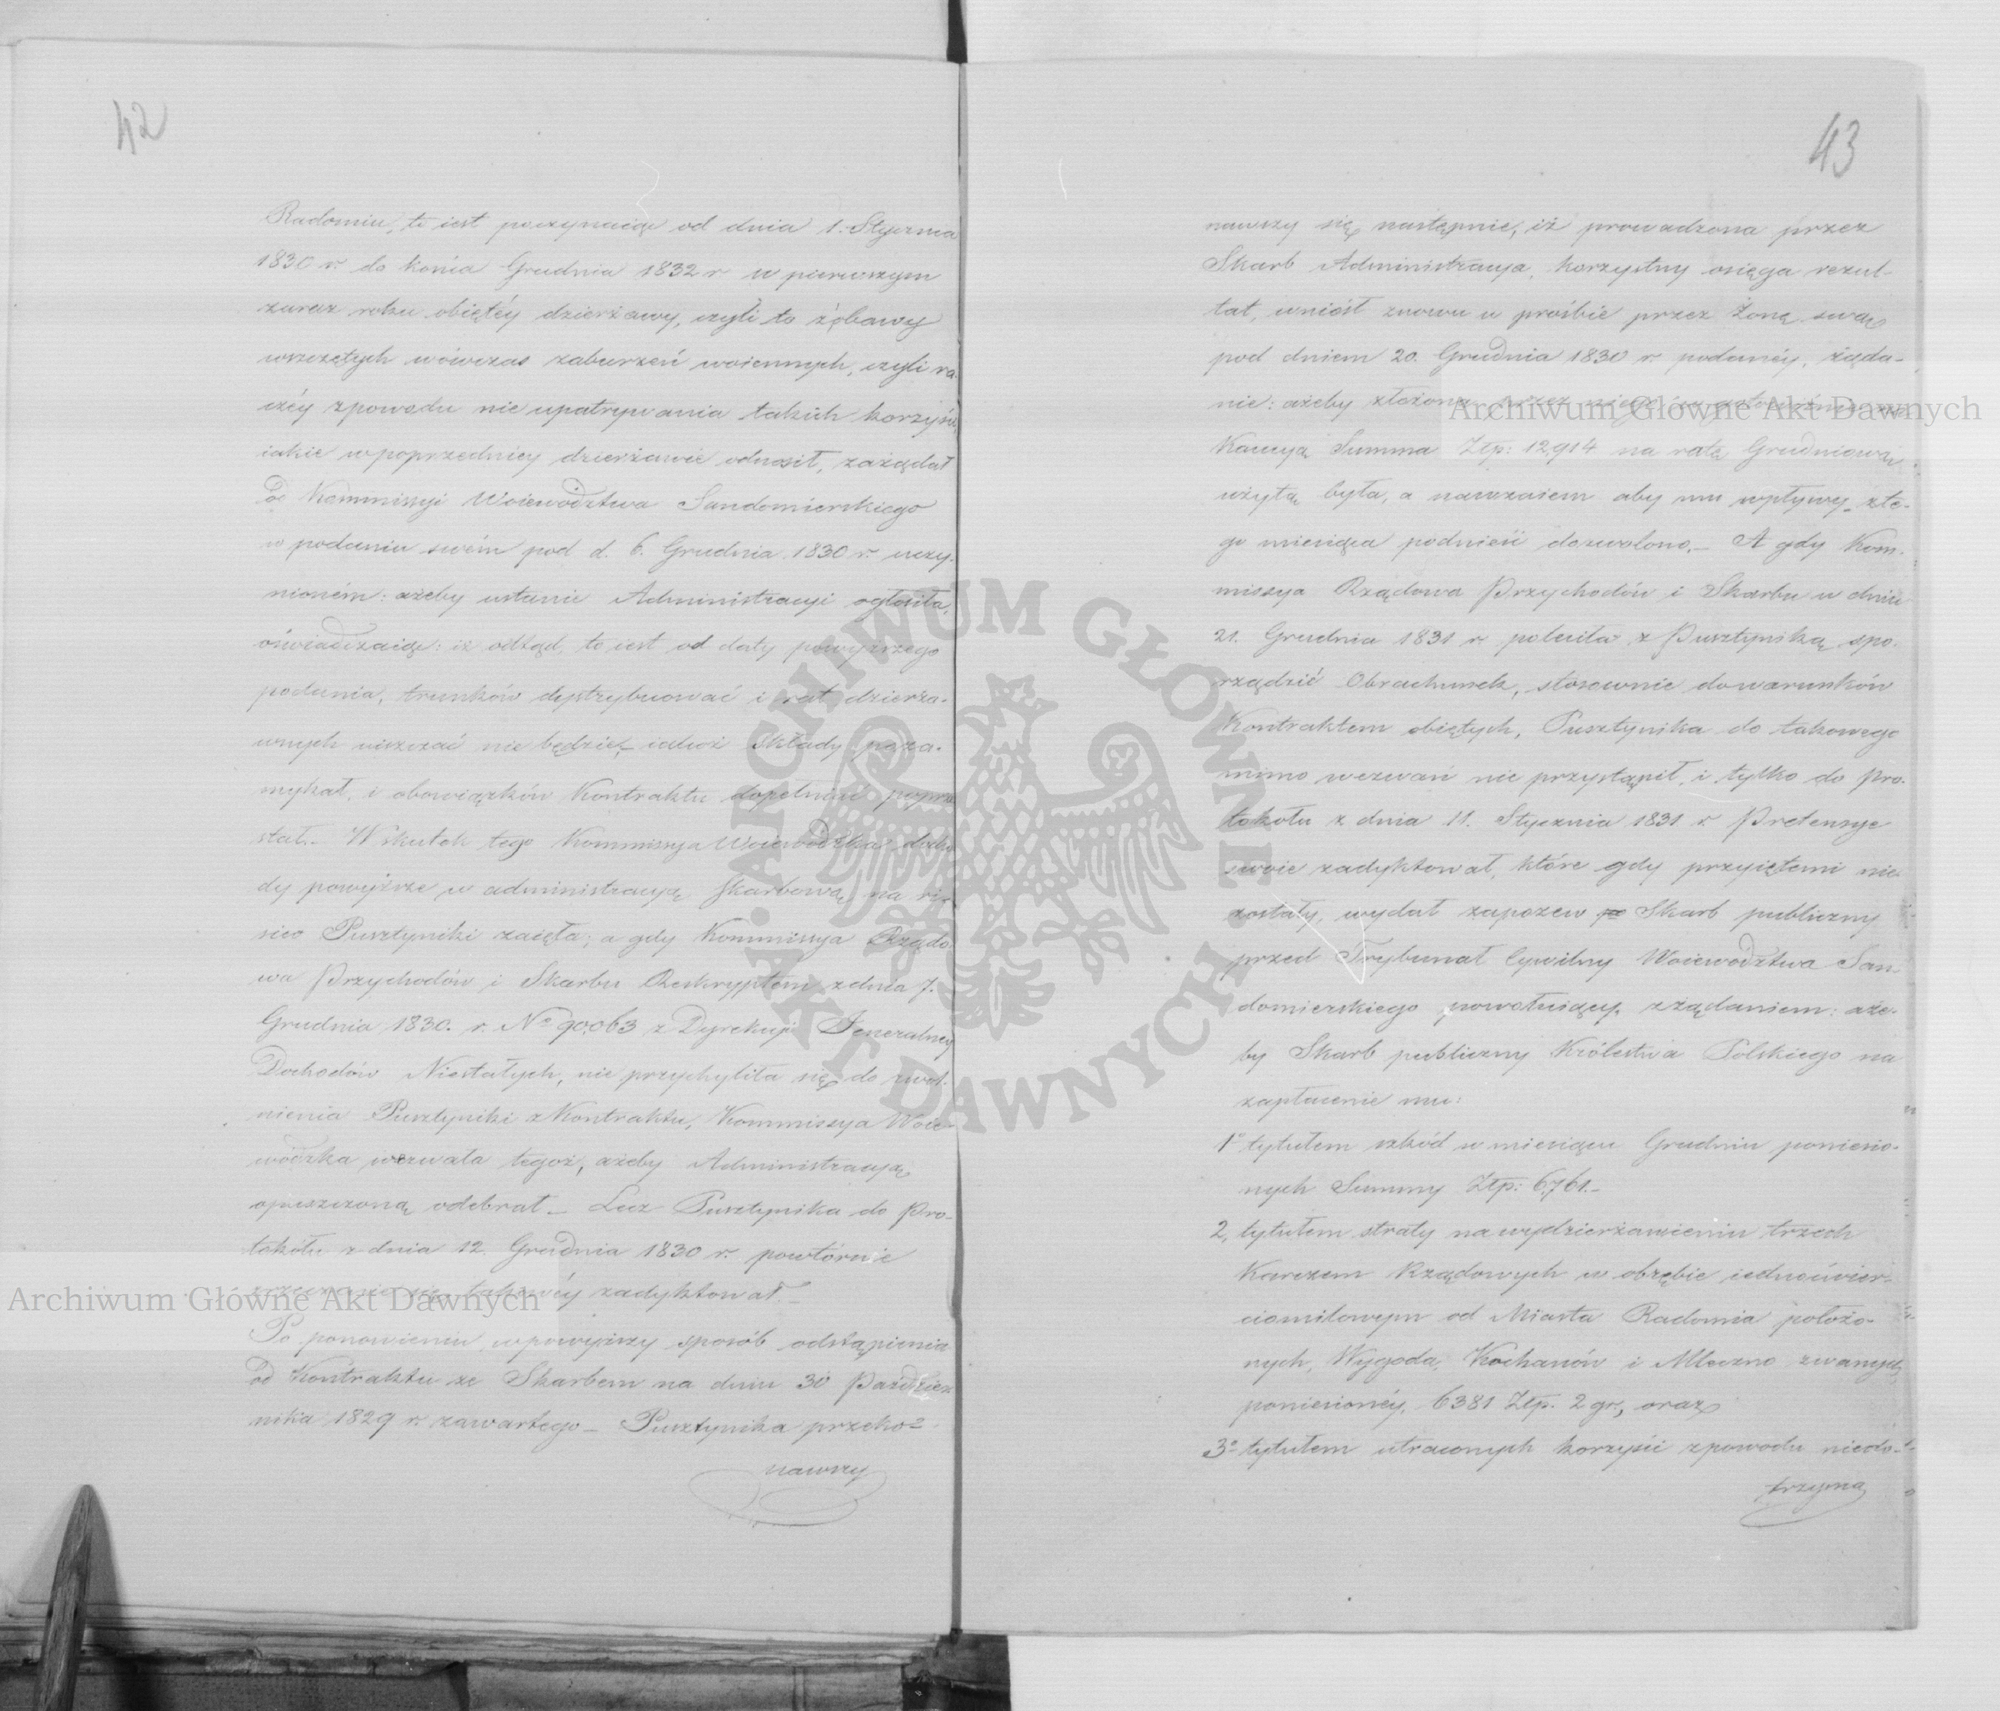 42
Radomiu, to iest poczynaiąc od dnia 1. Stycznia
1830 r. do końca Grudnia 1832 r. w pierwszym
zaraz roku obiętéy dzierżawy, czyli to z obawy
wszczętych wówczas zaburzeń woiennych, czyli ra-
czéy z powodu nie upatrywania takich korzyści,
iakie w poprzedniey dzierżawie odnosił, zażądał
od Kommissyi Woiewództwa Sandomierskiego
w podaniu swém pod d. 6. Grudnia 1830 r. uczy-
nioném: ażeby ustanie Administracyi ogłosiła,
oświadczaiąc: iż odtąd, to iest od daty powyższego
podania, trunków dystrybuować i rat dzierża-
wnych uiszczać nie będzie, iakoż Składy poza-
mykał, i obowiązków Kontraktu dopełniać poprze-
stał.- W skutek tego Kommissya Woiewódzka docho-
dy powyższe w administracyą skarbową na ri-
sico Pusztyniki zaięła; a gdy Kommissya Rządo-
wa Przychodów i Skarbu Reskryptem z dnia 7.
Grudnia 1830. r. No 90,063 z Dyrekcyi Jeneralney
Dochodów Niestałych, nie przychyliła się do uwol-
nienia Pusztyniki z Kontraktu, Kommissya Woie-
wódzka wezwała tegoż, ażeby Administracyą
opuszczoną odebrał_ Lecz Pusztynika do Pro-
tokółu z dnia 12. Grudnia 1830 r. powtórnie
zrzeczenie się takowéy zadyktował._
Po ponowieniu w powyższy sposób odstąpienia
od Kontraktu ze Skarbem na dniu 30 Paździer-
nika 1829 r. zawartego_ Pusztynika przeko-
nawszy
43
nawszy się następnie, iż prowadzona przez
Skarb Administracya, korzystny osięga rezul-
tat, wniósł znowu w prośbie przez Żonę swoię
pod dniem 20. Grudnia 1830 r. podanéy, żąda-
nie: ażeby złożona przez niego w gotowiźnie na
Kaucyą Summa Złp: 12,914 na ratę Grudniową
użytą była, a nawzaiem aby mu wpływy z te-
go miesiąca podnieść dozwolono._ A gdy Kom-
missya Rządowa Przychodów i Skarbu w dniu
21. Grudnia 1831 r. poleciła z Pusztyniką spo-
rządzić Obrachunek, stosownie do warunków
Kontraktem obiętych, Pusztynika do takowego
mimo wezwań nie przystąpił, i tylko do Pro-
tokołu z dnia 11. Stycznia 1831 r. Pretensye
swoie zadyktował, które gdy przyiętemi nie
zostały, wydał zapozew po Skarb publiczny
przed Trybunał Cywilny Woiewództwa San-
domierskiego powołuiący, z żądaniem: aże-
by Skarb publiczny Królestwa Polskiego na
zapłacenie mu:
1o tytułem szkód w miesiącu Grudniu poniesio-
nych Summy Złp: 6,761._
2, tytułem straty na wydzierżawieniu trzech
Karczem Rządowych w obrębie iednoćwier-
ciomilowym od Miasta Radomia położo-
nych, Wygoda, Kochanów i Mleczno zwanych
poniesionéy, 6381 Złp. 2 gr, oraz
3o tytułem utraconych korzyści z powodu niedo-
trzyma
Archiwum Główne Akt Dawnych
Archiwum Główne Akt Dawnych
ARCHIWUM GŁÓWNE
AKT DAWNYCH